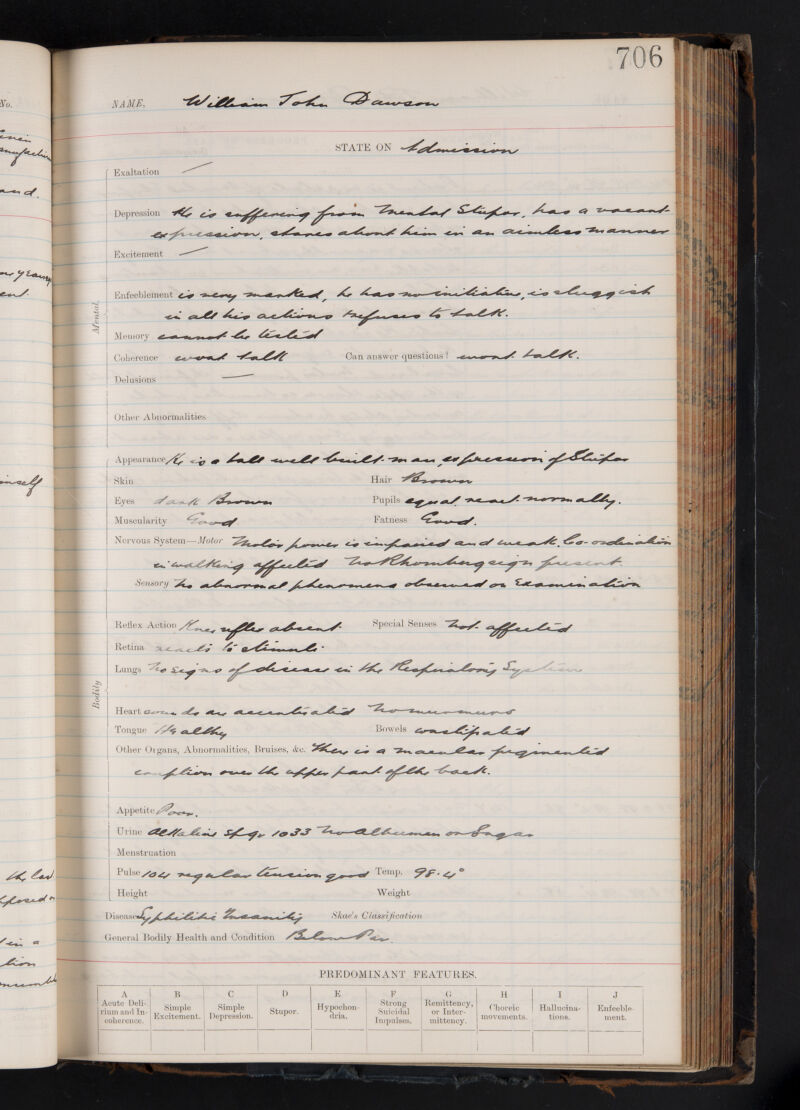 706
No.
NAME, William John Dawson
STATE ON Admission
Exaltation —
Depression He is suffering from Mental Stupor, has a vacant
expression, stares about him in an aimless manner
Excitement —
Mental
Enfeeblement is very marked, he has no initiative, is sluggish
in all his actions & refuses to talk.
Memory cannot be tested
Coherence wont talk Can answer questions? wont talk.
Delusions —
Other Abnormalities
Appearance He is a tall well built man, expression of Stupor
Skin Hair Brown
Eyes dark Brown Pupils equal react normally.
Muscularity Good Fatness Good.
Nervous System—Motor Motor power is impaired and weak. Co-ordination
in walking affected No Rhomberg sign present.
Sensory No abnormal phenomena observed on Examination
Reflex Action Knee reflex absent Special Senses Not affected
Retina reacts to stimuli.
Lungs No signs of disease in the Respiratory System
Bodily
Heart sounds are accentuated No murmurs
Tongue Healthy Bowels constipated
Other Organs, Abnormalities, Bruises, &c. There is a macular pigmented
eruption over the upper part of the back.
Appetite Poor.
Urine Alkaline Sp. Gr 1033 No Albumen or Sugar
Menstruation
Pulse 104 regular tension good Temp. 98.4°
Height Weight
Disease Syphilitic Insanity Skae's Classification
General Bodily Health and Condition Below Par.
PREDOMINANT FEATURES.
A B C D E F G H I J
Acute Deli- Simple Simple Stupor. Hypochon- Strong Remittency, Choreic Hallucina- Enfeeble-
rium and In- Excitement. Depression. dria. Suicidal or Inter- movements. tions. ment.
coherence. Impulses. mittency.